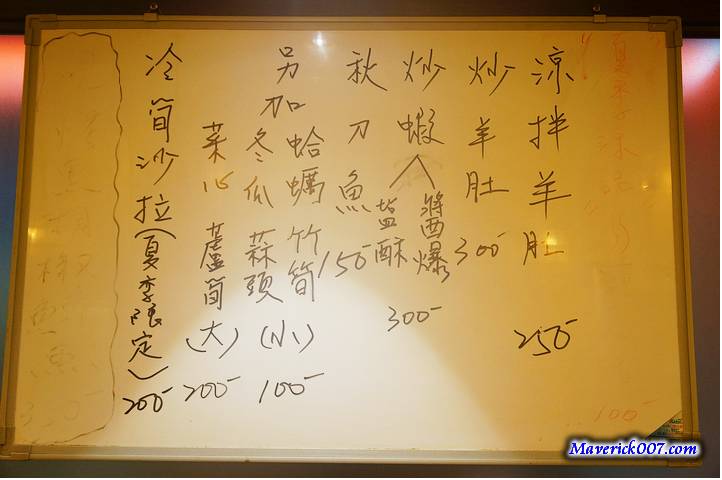 涼拌羊肚 250-
炒羊肚 300-
炒蝦人 醬爆 鹽酥 300-
秋刀魚 150-
另加 蛤蠣 竹筍 (小) 100-
冬瓜 蒜頭
菜心 蘆筍 (大) 200-
冷筍沙拉(夏季限定) 200-
100-
Maverick007.com